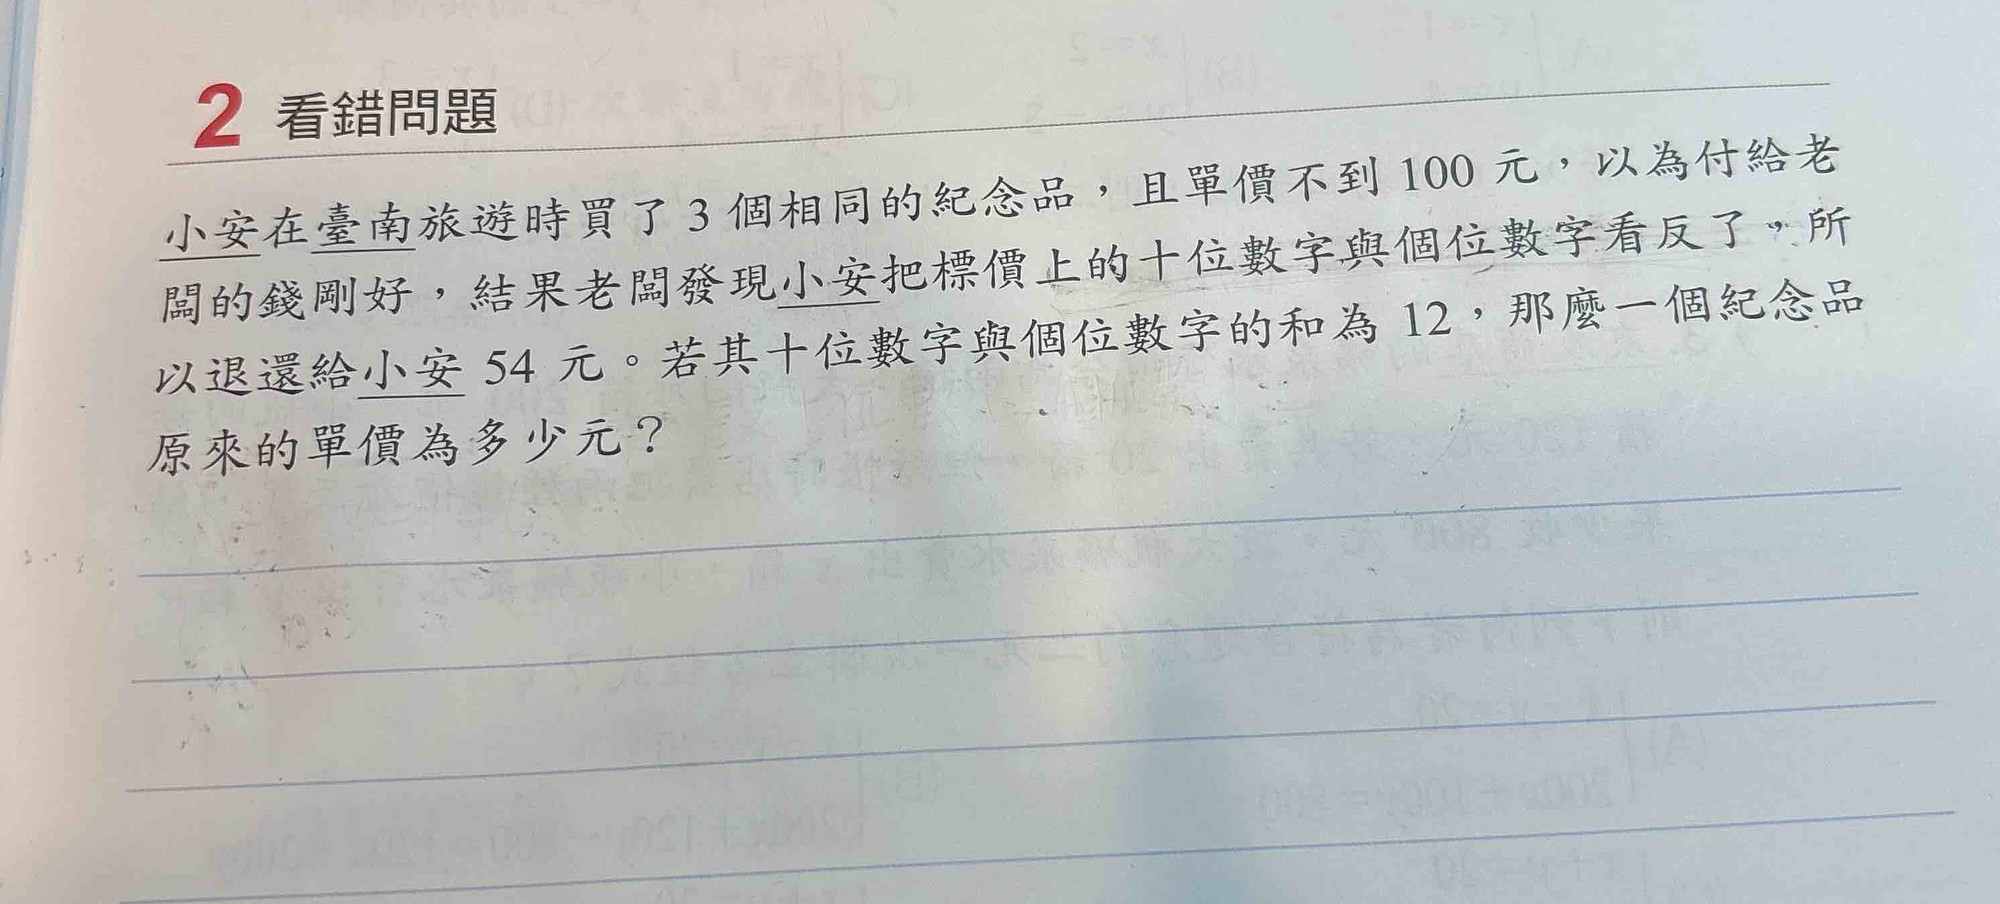 2 看錯問題
小安在臺南旅遊時買了 3 個相同的紀念品，且單價不到 100 元，以為付給老
闆的錢剛好，結果老闆發現小安把標價上的十位數字與個位數字看反了，所
以退還給小安 54 元。若其十位數字與個位數字的和為 12，那麼一個紀念品
原來的單價為多少元？